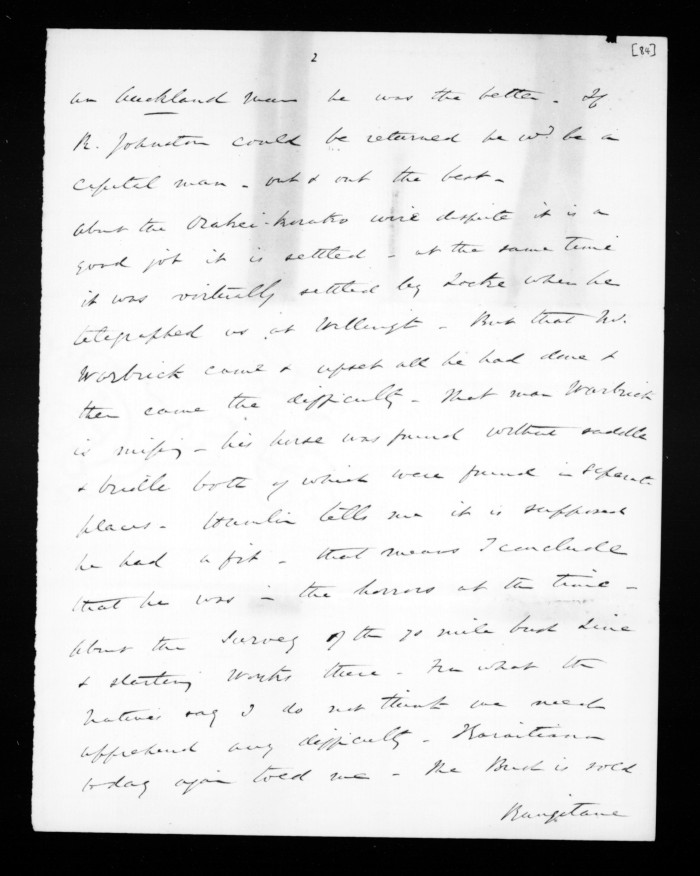 [84]
2
an Auckland man he was the better. If
R. Johnston could be returned he wd be a
capital man - out & out the best -
about the Orakei-Korako wire dispute it is a
good job it is settled - at the same time
it was virtually settled by Locke when he
telegraphed us at Wellingt - But that
Warbrick came & upset all he had done &
then came the difficulty - That man Warbrick
is missing - his horse was found without saddle
& bridle both of which were found in separate
places - Hamlin tells me it is supposed
he had a fit - that means I conclude
that he was in the horrors at the time -
about the Survey of the 70 mile bush Line
& starting works there - Fm what the
Natives say I do not think we need
apprehend any difficulty - Karaitiana
today again told me - The Bush is sold
Rangitane